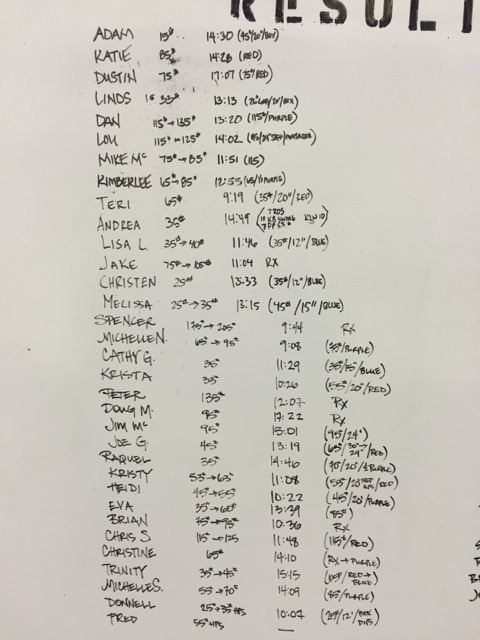 RESULT
ADAM 15# 14:30 (45#/20"/
KATIE 85# 14:28 (RED)
DUSTIN 75# 17:07 (75#/RED)
LINDS 33# 13:13
DAN 115#→135# 13:20 (115#/PURPLE)
LOU 115#→125# 14:02
MIKE Mc 75#→85# 11:51 (115)
KIMBERLEE 65#→85# 12:55
TERI 65# 9:19 (35#/20"/RED)
ANDREA 35# 14:49
LISA L. 35#→40# 11:46 (35#/12"/BLUE)
JAKE 75#→105# 11:04 RX
CHRISTEN 25# 13:33 (35#/12"/BLUE)
MELISSA 25#→35# 13:15 (45#/15"/BLUE)
SPENCER 175#→205# 9:44 Rx
MICHELLE N. 65#→95# 9:08 (75#/PURPLE)
CATHY G. 35# 11:29 (35#/15"/BLUE)
KRISTA 35# 10:26 (55#/20"/RED)
PETER 135# 12:07 Rx
DOUG M. 95# 17:22 Rx
JIM Mc 95# 15:01 (95/24")
JOE G. 45# 13:19 (65#/ 24" /RED)
RAQUEL 35# 14:46 (70/20"/PURPLE)
KRISTY 55#→65# 11:08 (55#/20" /RED)
HEIDI 45#→55 10:22 (45#/20"/PURPLE)
EVA 35#→60# 13:39 (85#)
BRIAN 75#→95# 10:36 Rx
CHRIS S 115#→125 11:48 (115#/RED)
CHRISTINE 65# 14:10 (RX→PURPLE)
TRINITY 35#→45# 15:15 RED→BLUE)
MICHELLE S. 55→70# 14:09 (85#/PURPLE)
DONNELL 25#→35# HPS 10:07 (25#/12"/BOX DIPS)
FRED 55# HPS —